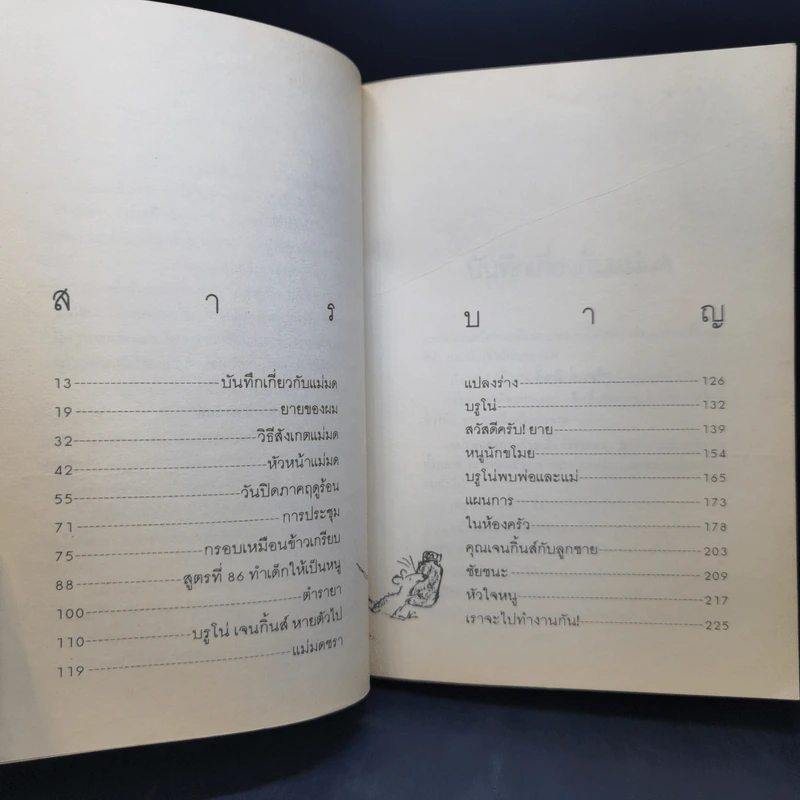 ส า ร
13 บันทึกเกี่ยวกับแม่มด
19 ยายของผม
32 วิธีสังเกตแม่มด
42 หัวหน้าแม่มด
55 วันปิดภาคฤดูร้อน
71 การประชุม
75 กรอบเหมือนข้าวเกรียบ
88 สูตรที่ 86 ทำเด็กให้เป็นหนู
100 ตำรายา
110 บรูโน่ เจนกิ้นส์ หายตัวไป
119 แม่มดชรา
บ า ญ
แปลงร่าง 126
บรูโน่ 132
สวัสดีครับ! ยาย 139
หนูนักขโมย 154
บรูโน่พบพ่อและแม่ 165
แผนการ 173
ในห้องครัว 178
คุณเจนกิ้นส์กับลูกชาย 203
ชัยชนะ 209
หัวใจหนู 217
เราจะไปทำงานกัน! 225